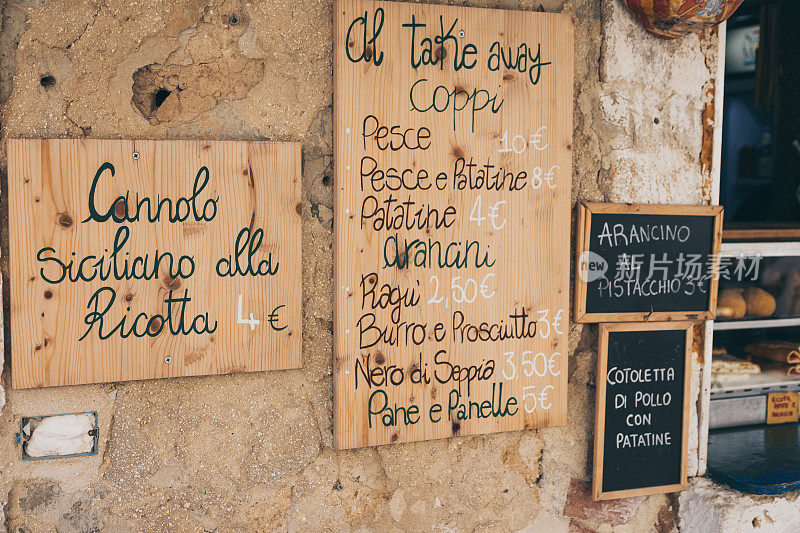 Cannolo
Siciliano alla
Ricotta 4€
Al take away
Coppi
Pesce 10€
Pesce e Patatine 8€
Patatine 4€
arancini
Ragù 2,50€
Burro e Prosciutto 3€
Nero di Seppia 3,50€
Pane e Panelle 5€
ARANCINO
AL
PISTACCHIO 3€
COTOLETTA
DI POLLO
CON
PATATINE
new
新图网